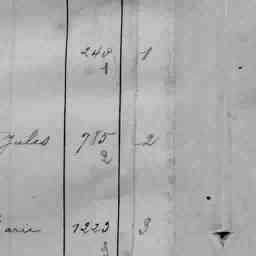 240 1
1
Jules 785 2
2
arie 1223 3
3